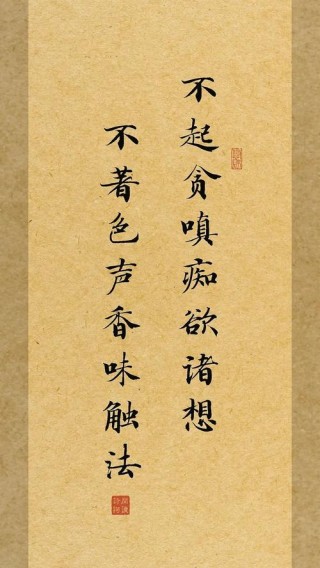 不起贪嗔痴欲诸想
不著色声香味触法